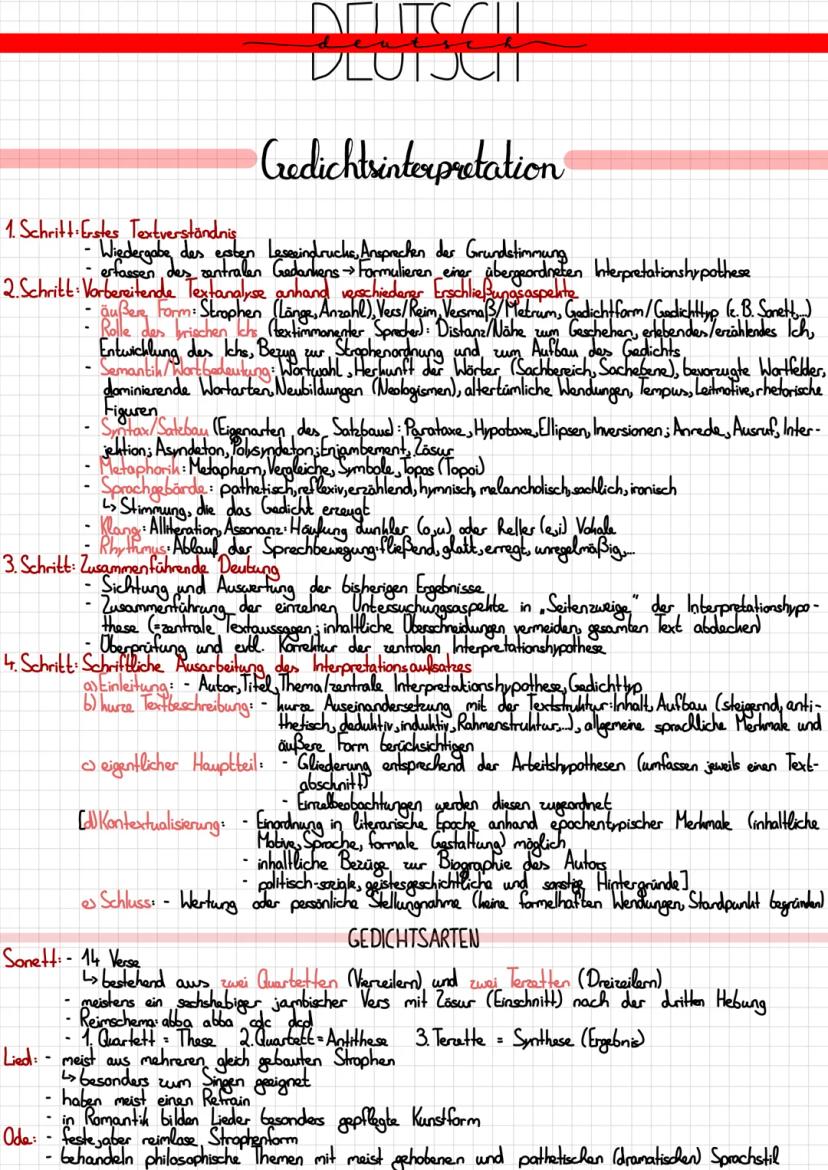 DEUTSCH
deutsch
Gedichtsinterpretation
1. Schritt: Erstes Textverständnis
- Wiedergabe des ersten Leseeindrucks, Ansprechen der Grundstimmung
- erfassen des zentralen Gedankens → Formulieren einer übergeordneten Interpretationshypothese
2. Schritt: Vorbereitende Textanalyse anhand verschiedener Erschließungsaspekte
- äußere Form: Strophen (Länge, Anzahl), Vers/Reim, Versmaß/Metrum, Gedichtform/Gedichttyp (z. B. Sonett,...)
- Rolle des lyrischen Ichs (textimmanenter Sprecher): Distanz/Nähe zum Geschehen, erlebendes/erzählendes Ich,
Entwicklung des Ichs, Bezug zur Strophenordnung und zum Aufbau des Gedichts
- Semantik/Wortbedeutung: Wortwahl, Herkunft der Wörter (Sachbereich, Sachebene), bevorzugte Wortfelder,
dominierende Wortarten, Neubildungen (Neologismen), altertümliche Wendungen, Tempus, Leitmotive, rhetorische
Figuren
- Syntax/Satzbau (Eigenarten des Satzbaus): Parataxe, Hypotaxe, Ellipsen, Inversionen; Anrede, Ausruf, Inter-
jektion; Asyndeton, Polysyndeton; Enjambement, Zäsur
- Metaphorik: Metaphern, Vergleiche, Symbole, Topos (Topoi)
- Sprachgebärde: pathetisch, reflexiv, erzählend, hymnisch, melancholisch, sachlich, ironisch
↳ Stimmung, die das Gedicht erzeugt
- Klang: Alliteration, Assonanz: Häufung dunkler (o,u) oder heller (e,i) Vokale
- Rhythmus: Ablauf der Sprechbewegung: fließend, glatt, erregt, unregelmäßig,...
3. Schritt: Zusammenführende Deutung
- Sichtung und Auswertung der bisherigen Ergebnisse
- Zusammenführung der einzelnen Untersuchungsaspekte in „Seitenzweige" der Interpretationshypo-
these (=zentrale Textaussagen; inhaltliche Überschneidungen vermeiden, gesamten Text abdecken)
- Überprüfung und evtl. Korrektur der zentralen Interpretationshypothese
4. Schritt: Schriftliche Ausarbeitung des Interpretationsaufsatzes
a) Einleitung: - Autor, Titel, Thema/zentrale Interpretationshypothese, Gedichttyp
b) kurze Textbeschreibung: - kurze Auseinandersetzung mit der Textstruktur: Inhalt, Aufbau (steigernd, anti-
thetisch, deduktiv, induktiv, Rahmenstruktur,...), allgemeine sprachliche Merkmale und
äußere Form berücksichtigen
c) eigentlicher Hauptteil: - Gliederung entsprechend der Arbeitshypothesen (umfassen jeweils einen Text-
abschnitt)
- Einzelbeobachtungen werden diesen zugeordnet
[d) Kontextualisierung: - Einordnung in literarische Epoche anhand epochentypischer Merkmale (inhaltliche
Motive, Sprache, formale Gestaltung) möglich
- inhaltliche Bezüge zur Biographie des Autors
- politisch-soziale, geistesgeschichtliche und sonstige Hintergründe]
e) Schluss: - Wertung oder persönliche Stellungnahme (keine formelhaften Wendungen, Standpunkt begründen)
GEDICHTSARTEN
Sonett: - 14 Verse
↳ bestehend aus zwei Quartetten (Vierzeilern) und zwei Terzetten (Dreizeilern)
- meistens ein sechshebiger jambischer Vers mit Zäsur (Einschnitt) nach der dritten Hebung
- Reimschema: abba abba cdc dcd
- 1. Quartett = These 2. Quartett = Antithese 3. Terzette = Synthese (Ergebnis)
Lied: - meist aus mehreren gleich gebauten Strophen
↳ besonders zum Singen geeignet
- haben meist einen Refrain
- in Romantik bilden Lieder besonders gepflegte Kunstform
Ode: - feste, aber reimlose Strophenform
- behandeln philosophische Themen mit meist gehobenen und pathetischen (dramatischen) Sprachstil